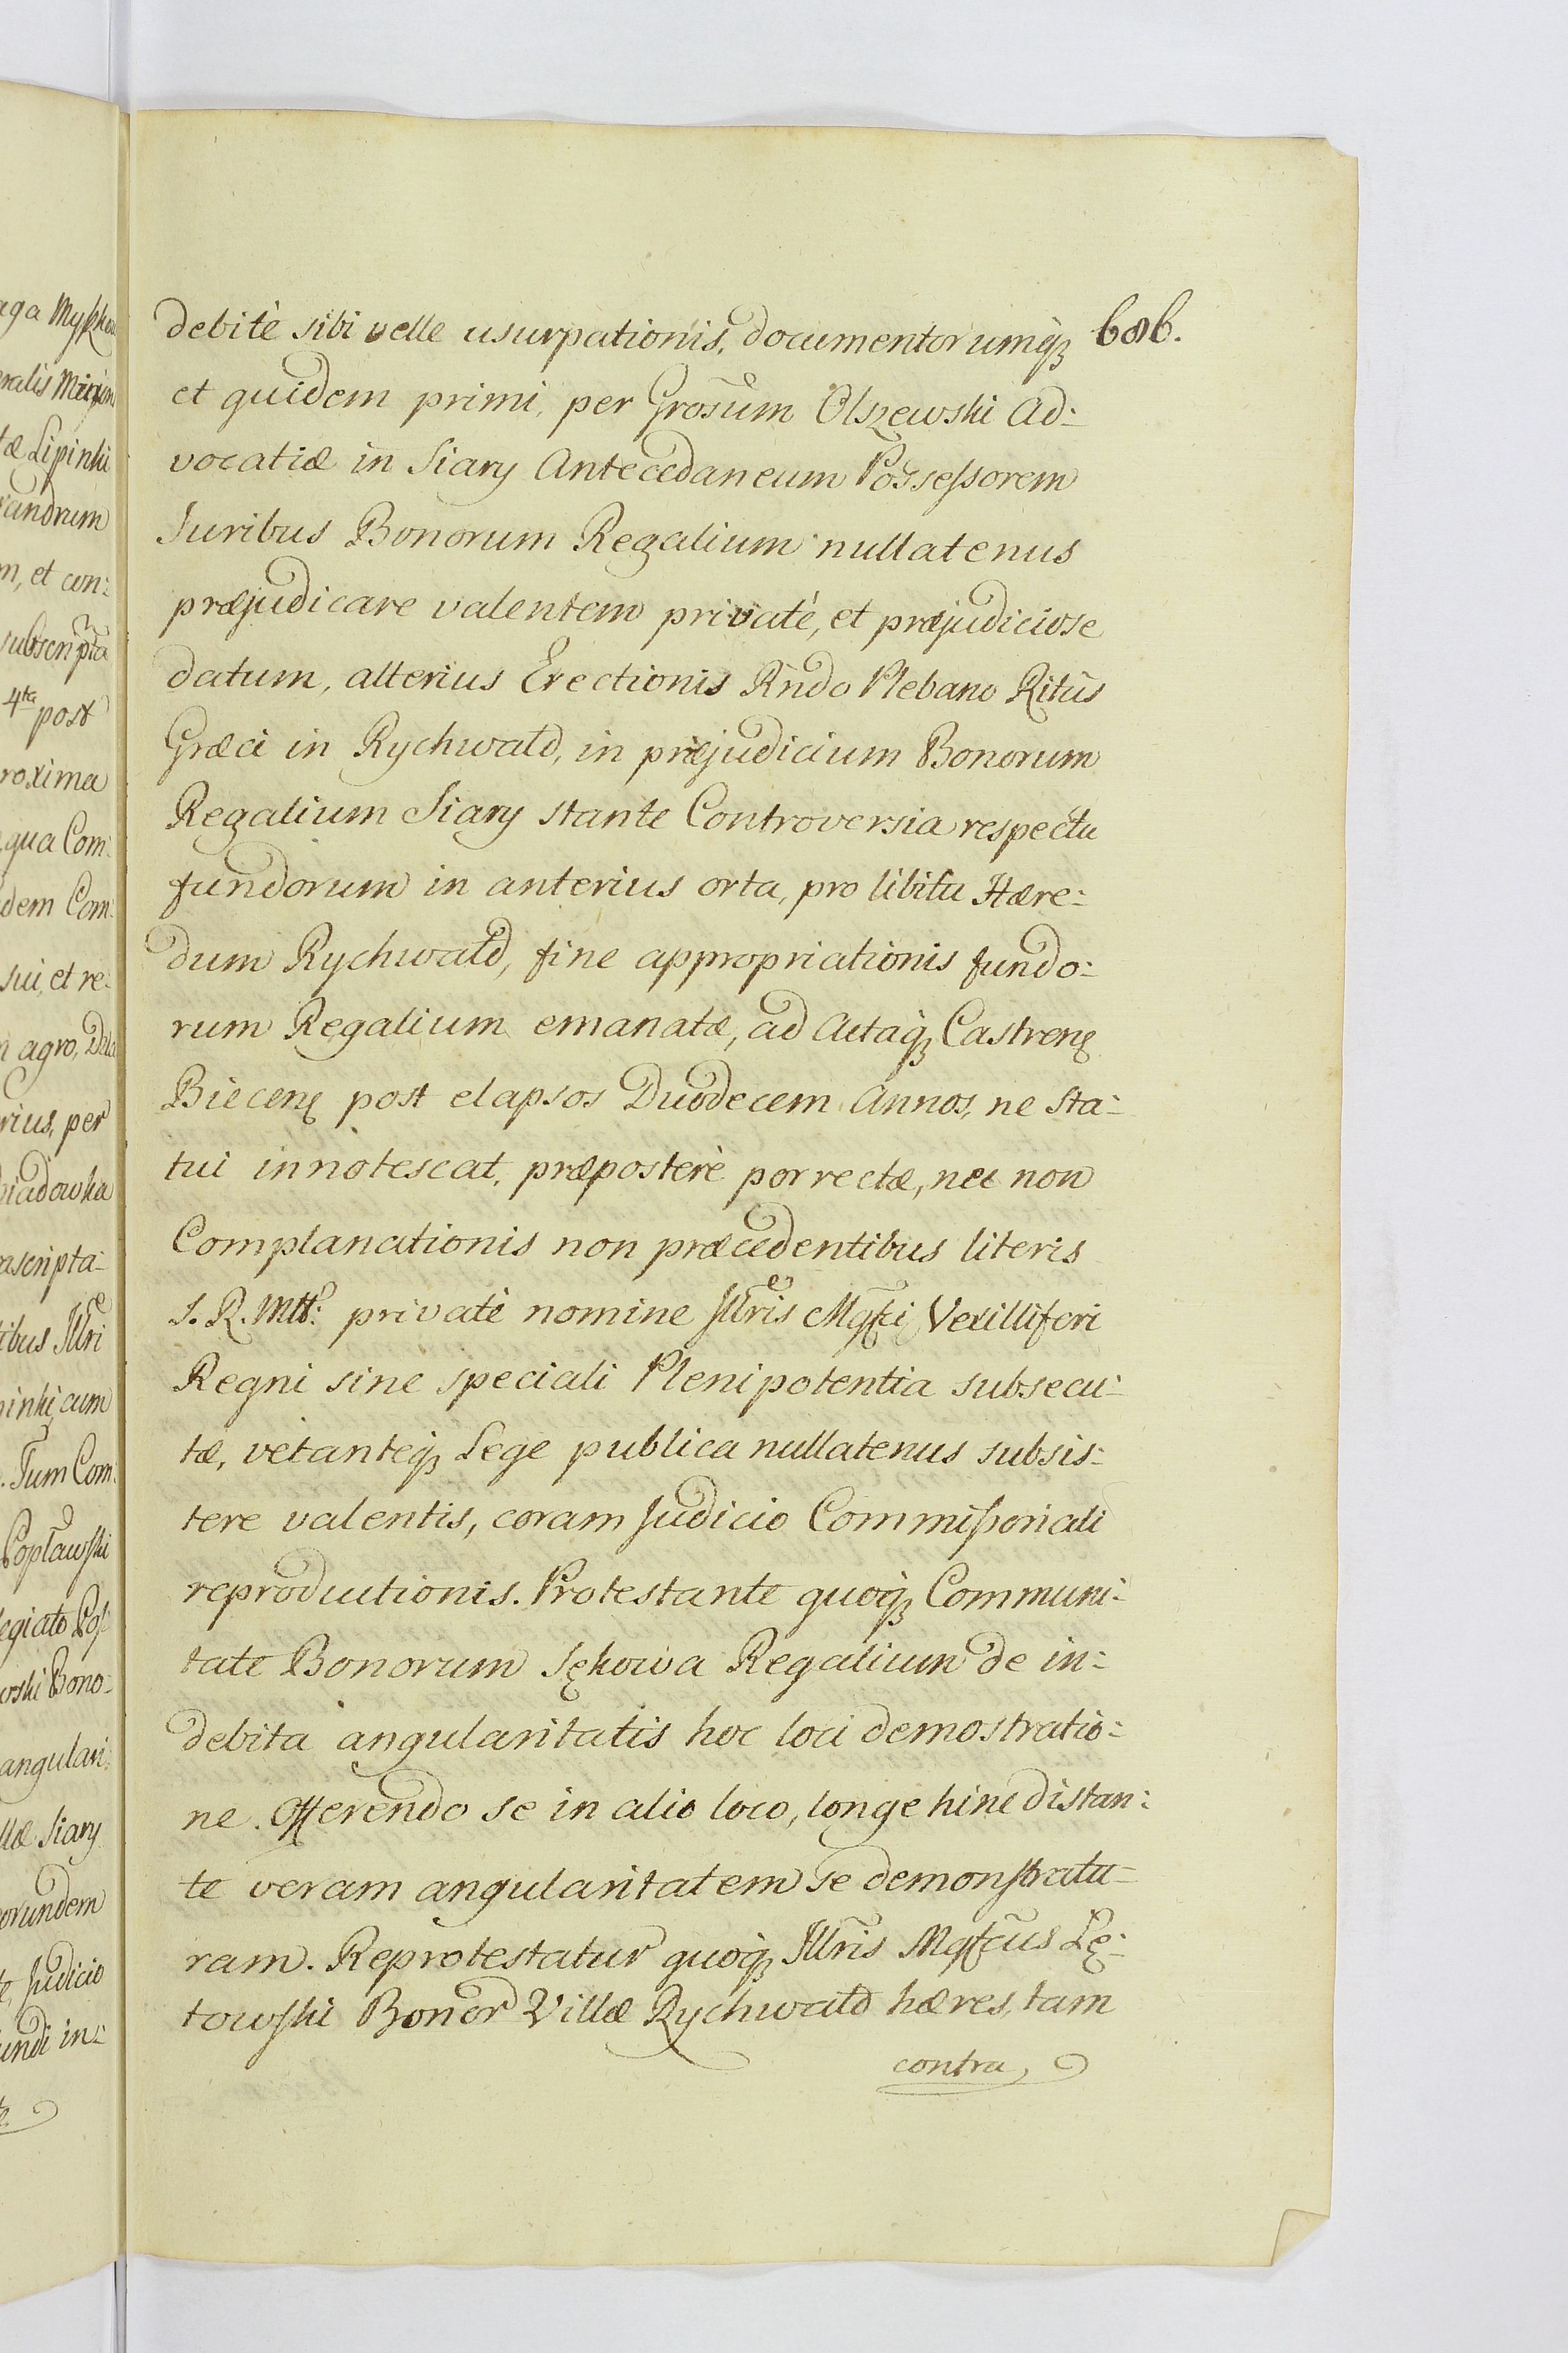 686.
debitè sibi velle usurpationis, documentorumq̃
et quidem primi, per Grosūm Olszewski Ad-
vocatiæ in Siary Antecedaneum Possessorem
Juribus Bonorum Regalium nullatenus
præjudicare valentem privatè, et præjudiciose
datum, alterius Erectionis Rñdo Plebano Ritûs
Græci in Rychwald, in præjudicium Bonorum
Regalium Siary stante Controversia respectu
fundorum in anterius orta, pro libitu Hære-
dum Rychwald, fine appropriationis fundo-
rum Regalium emanatæ, ad Actaq̃ Castreñ
Bieceñ post elapsos Duodecem Annos, ne Sta-
tui innotescat, præposterè porrectæ, nec non
Complanationis non præcedentibus literis
S. R. Mtt: privatè nomine Jllris Mgfci Vexilliferi
Regni sine speciali Plenipotentia subsecu-
tæ, vetanteq̃ Lege publica nullatenus subsis-
tere valentis, coram Judicio Commissoriali
reproductionis. Protestante quoq̃ Communi-
tate Bonorum Sękowa Regalium de in-
debita angularitatis hoc loci demostratio-
ne. Offerendo se in alio loco, longe hinc distan-
te veram angularitatem se demonstratu-
ram. Reprotestatur quoq̃ Jllris Mgfcus Łę-
towski Bonor Villæ Rychwald hæres, tam
contra